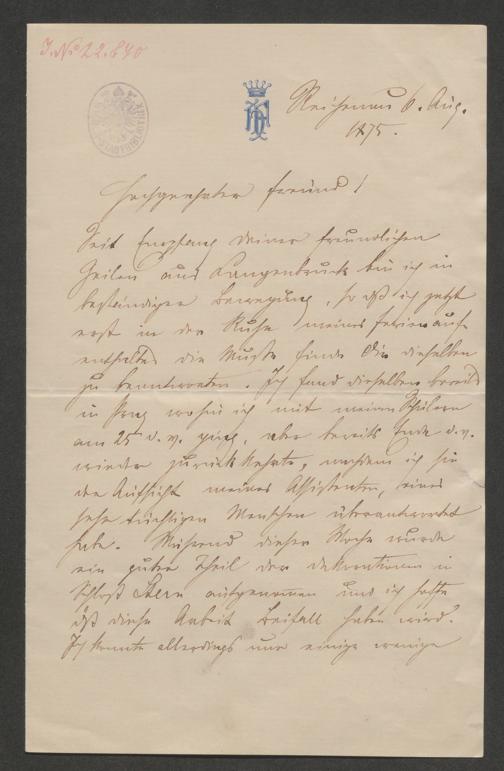 J. No 22.840
Reichenau 6. Aug.
1875.
Hochgeehrter Freund!
Seit Empfang Deiner freundlichen
Zeilen aus Langenbruck bin ich in
beständiger Bewegung, so dß ich jetzt
erst in der Ruhe meines Ferienauf-
enthaltes die Muße finde Dir dieselben
zu beantworten. Ich fand dieselben bereits
in Prag wohin ich mit meinen Schülern
am 25t d. v. ging, aber bereits Ende d. v.
wieder zurückkehrte, nachdem ich sie
der Aufsicht meines Assistenten, eines
sehr tüchtigen Menschen überantwortet
habe. Während dieser Woche wurde
ein guter Theil der Dekorationen in
Schloß Stern aufgenommen und ich hoffe
dß diese Arbeit Beifall haben wird.
Ich konnte allerdings nur einige wenige